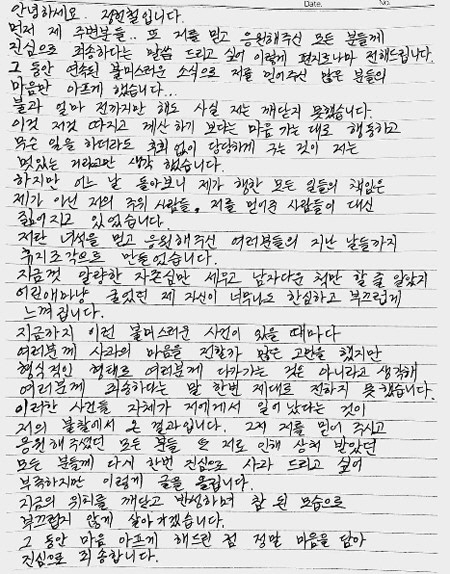 Date. No.
안녕하세요. 정현철입니다.
먼저 제 주변분들.. 또 저를 믿고 응원해주신 모든 분들께
진심으로 죄송하다는 말씀 드리고 싶어 이렇게 편지로나마 전해드립니다.
그 동안 연속된 불미스러운 소식으로 저를 믿어주신 많은 분들의
마음만 아프게 했습니다...
불과 얼마 전까지만 해도 사실 저는 깨닫지 못했습니다.
이것 저것 따지고 계산하기 보다는 마음 가는 대로 행동하고
무슨 일을 하더라도 후회 없이 당당하게 구는 것이 저는
멋있는 거라고만 생각 했었습니다.
하지만 어느 날 돌아보니 제가 행한 모든 일들의 책임은
제가 아닌 저의 주위 사람들, 저를 믿어준 사람들이 대신
짊어지고 있었습니다.
저란 녀석을 믿고 응원해주신 여러분들의 지난 날들까지
휴지조각으로 만들었습니다.
지금껏 알량한 자존심만 세우고 남자다운 척만 할 줄 알았지
어린애마냥 굴었던 제 자신이 너무나도 한심하고 부끄럽게
느껴집니다.
지금까지 이런 불미스러운 사건이 있을 때마다
여러분께 사과의 마음을 전할까 많은 고민을 했지만
형식적인 형태로 여러분께 다가가는 것은 아니라고 생각해
여러분께 죄송하다는 말 한번 제대로 전하지 못했습니다.
이러한 사건들 자체가 저에게서 일어났다는 것이
저의 불찰에서 온 결과입니다. 그저 저를 믿어 주시고
응원해주셨던 모든 분들 또 저로 인해 상처 받았던
모든 분들께 다시 한번 진심으로 사과 드리고 싶어
부족하지만 이렇게 글을 올립니다.
지금의 위치를 깨닫고 반성하며 참 된 모습으로
부끄럽지 않게 살아가겠습니다.
그 동안 마음 아프게 해드린 점 정말 마음을 담아
진심으로 죄송합니다.